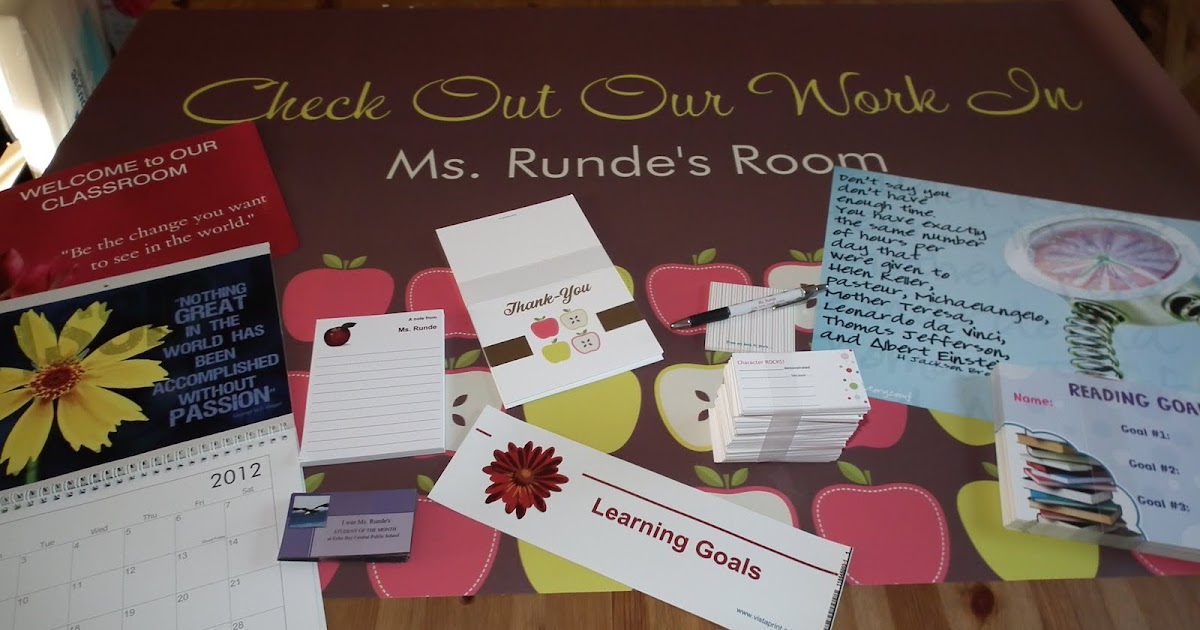 Check Out Our Work In
Ms. Runde's Room
WELCOME to OUR
CLASSROOM
"Be the change you want
to see in the world."
"NOTHING
GREAT
IN THE
WORLD HAS
BEEN
ACCOMPLISHED
WITHOUT
PASSION"
2012
Tue Wed Thu Fri Sat
3 4 5 6 7
10 11 12 13 14
18 19 20 21
28
A note from
Ms. Runde
Thank-You
I was Ms. Runde's
STUDENT OF THE MONTH
at Echo Bay Central Public School
Learning Goals
www.vistaprint.
Character ROCKS!
Don't say you
don't have
enough time.
You have exactly
the same number
of hours per
day that
were given to
Helen Keller,
Pasteur, Michaelangelo,
Mother Teresa,
Leonardo da Vinci,
Thomas Jefferson,
and Albert Einste
Jackson Bro
READING GOA
Name:
Goal #1:
Goal #2:
Goal #3: